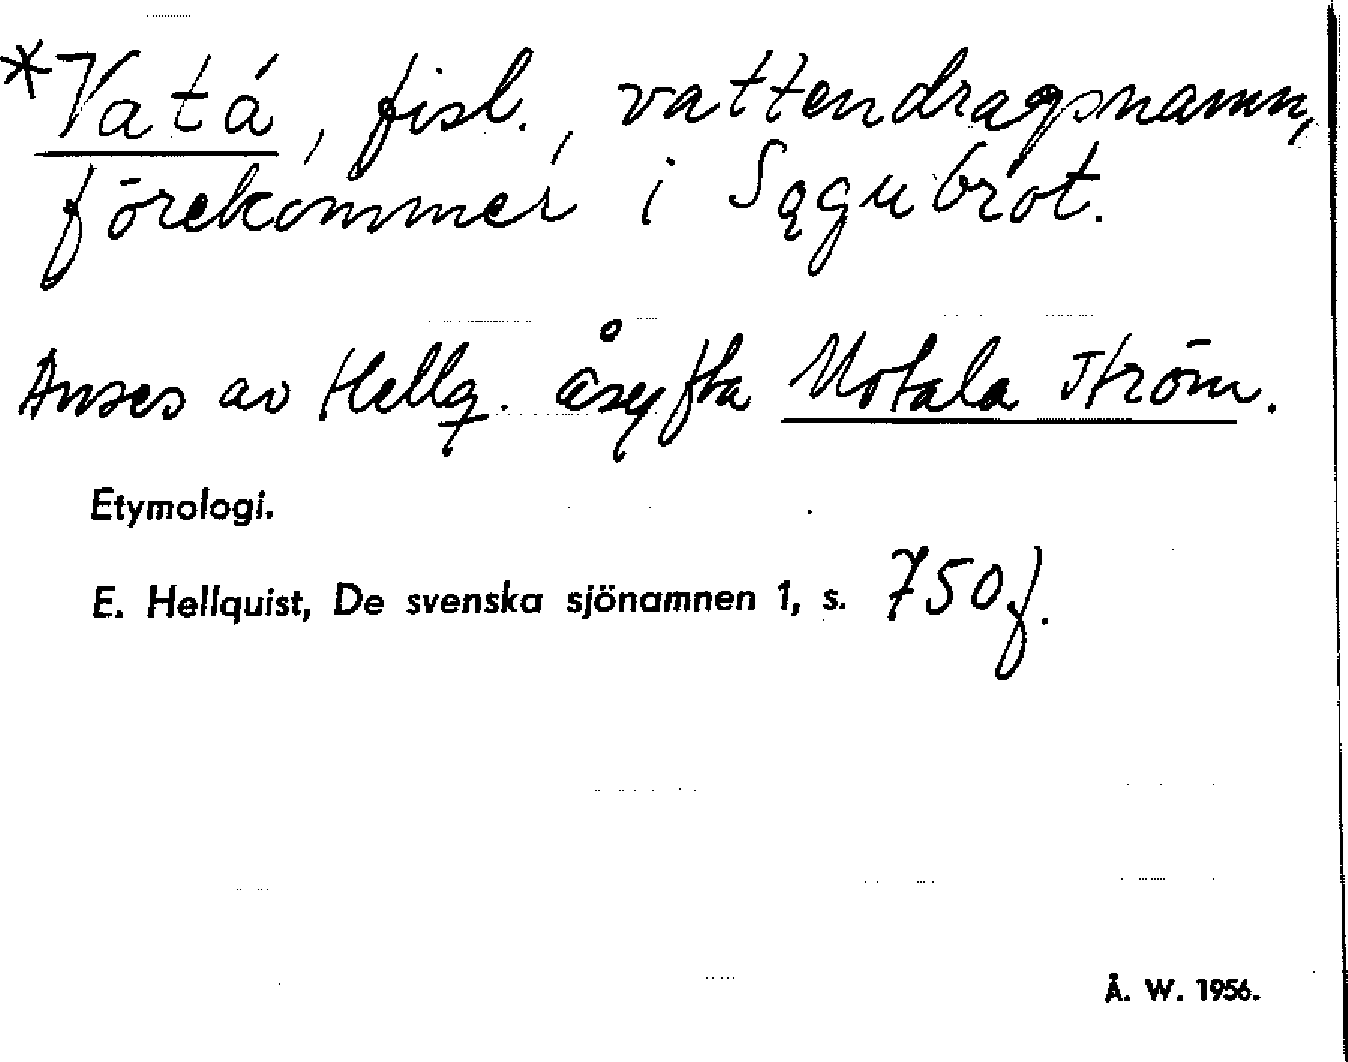 *Vatá, fisl., vattendragsnamn,
förekommer i Sǫgubrot.
Anses av Hellq. åsyfta Motala Ström.
Etymologi.
E. Hellquist, De svenska sjönamnen 1, s. 750 f.
Å. W. 1956.